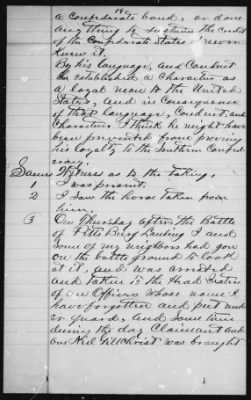 a Confederate bond, or done
any thing to sustain the credit
of the Confederate States I never
knew it.
By his language, and Conduct
he established a Character as
a loyal man to the United
States, and in Consequence
of that language, Conduct, and
Character I think he might have
been prevented from proving
his loyalty to the Southern Confed-
eracy.
Same Witness as to the taking.
1 I was present.
2 I saw the horse taken from
him.
3 On Thursday after the Battle
of Pittsburg Landing I and
some of my neighbors had gon
on the battle ground to look
at it, and was arrested
and taken to the Head Quarters
of an Officers whose name I
have forgotten and put und-
er guard, and some time
during the day Claimant and
one Gillchrist was brought